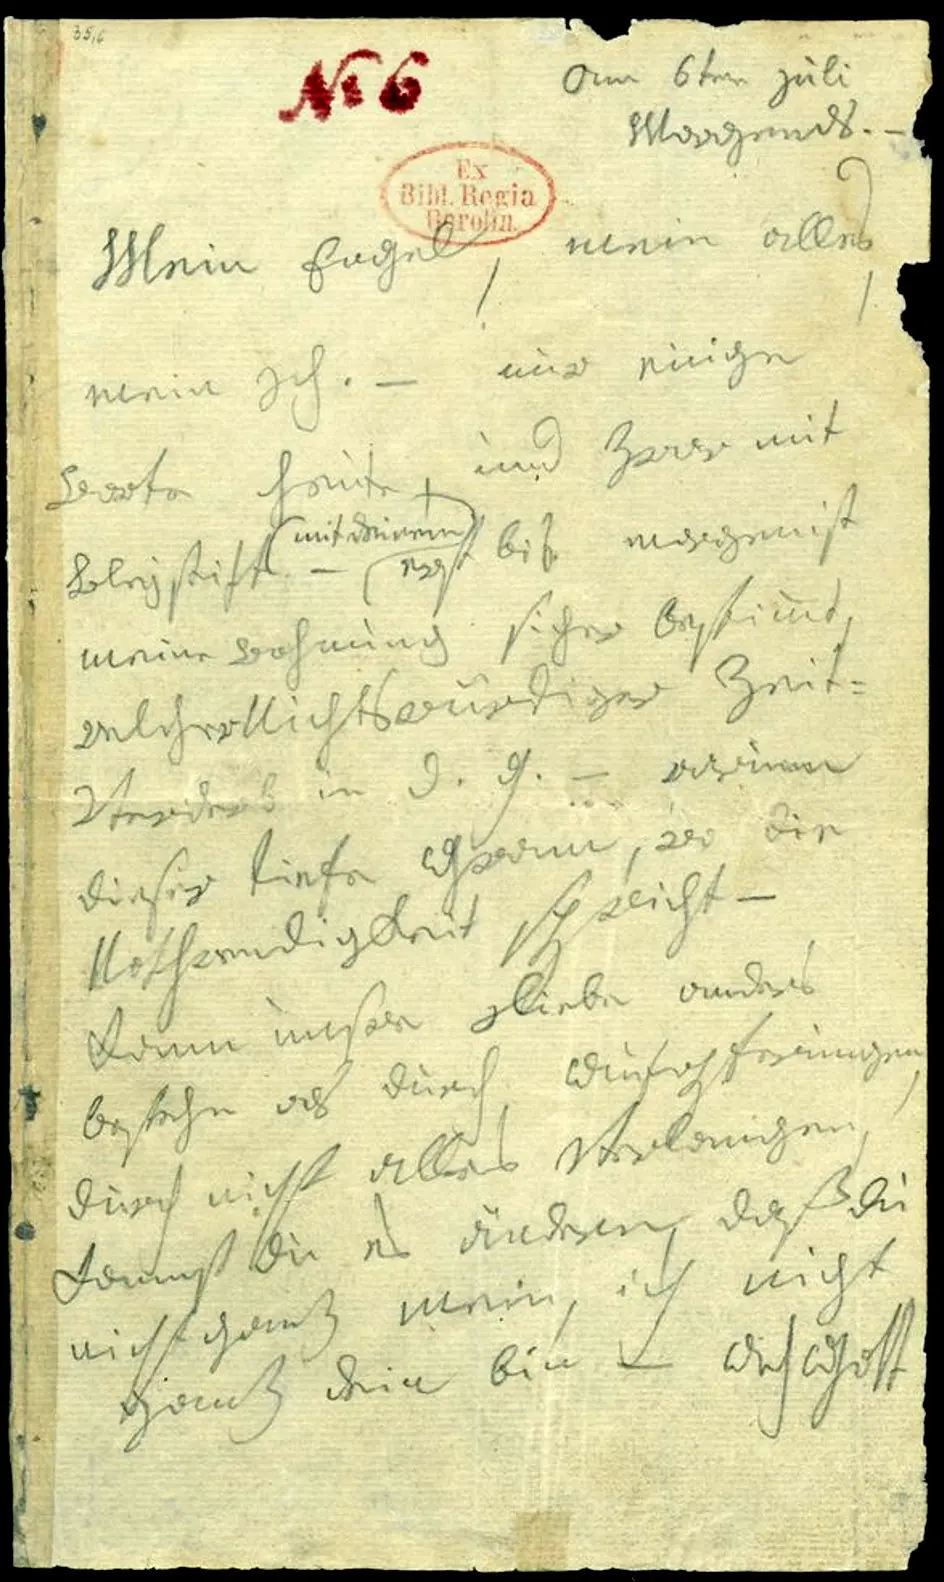 35,6
No 6
am 6ten juli
Morgends. –
Ex
Bibl. Regia
Berolin.
Mein Engel, mein alles,
mein Ich. – nur einige
Worte heute, und zwar mit
Bleystift – (mit deinem)
erst bis morgen ist
meine wohnung sicher bestimt,
welcher Nichtswürdiger Zeit=
Verderb in d. g. – warum
dieser tiefe Gram, wo die
Nothwendigkeit spricht –
Kann unsre Liebe anders
bestehn als durch Aufopferungen,
durch nicht alles verlangen,
kannst du es ändern, daß du
nicht ganz mein, ich nicht
ganz dein bin – Ach Gott